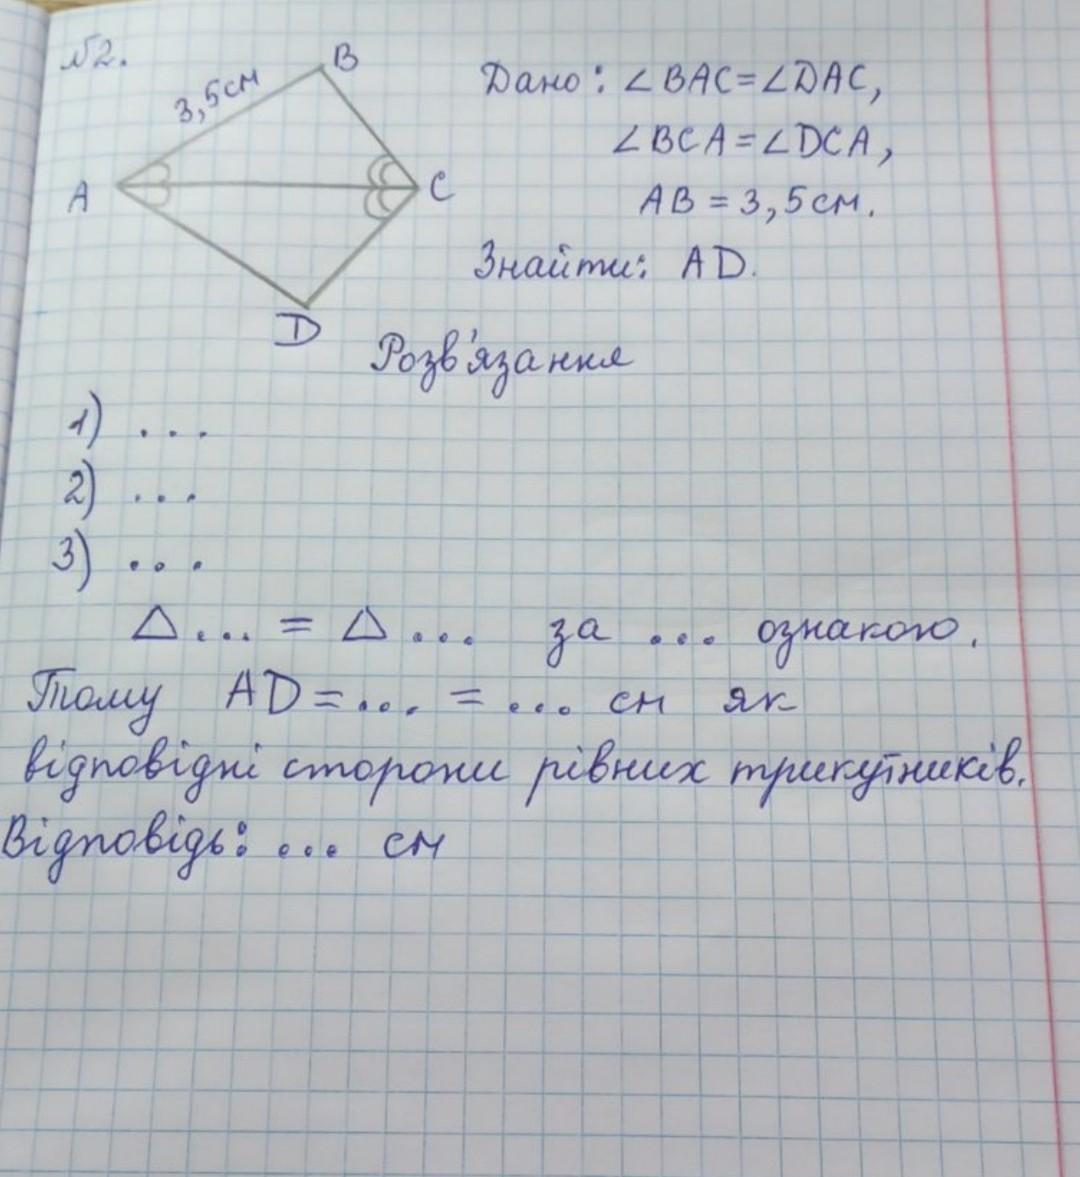 №2.
B
3,5см
A
C
D
Дано: ∠BAC=∠DAC,
∠BCA=∠DCA,
AB = 3,5 см.
Знайти: AD.
Розв'язання
1) ...
2) ...
3) ...
Δ... = Δ... за ... ознакою.
Тому AD=... = ... см як
відповідні сторони рівних трикутників.
Відповідь: ... см